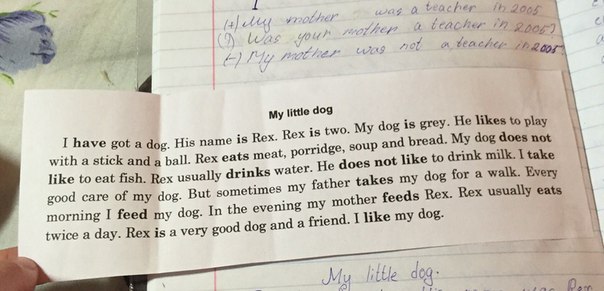 (+) My mother was a teacher in 2005
(?) Was your mother a teacher in 2005?
(-) My mother was not a teacher in 2005.
My little dog
I have got a dog. His name is Rex. Rex is two. My dog is grey. He likes to play
with a stick and a ball. Rex eats meat, porridge, soup and bread. My dog does not
like to eat fish. Rex usually drinks water. He does not like to drink milk. I take
good care of my dog. But sometimes my father takes my dog for a walk. Every
morning I feed my dog. In the evening my mother feeds Rex. Rex usually eats
twice a day. Rex is a very good dog and a friend. I like my dog.
My little dog.
was Rex